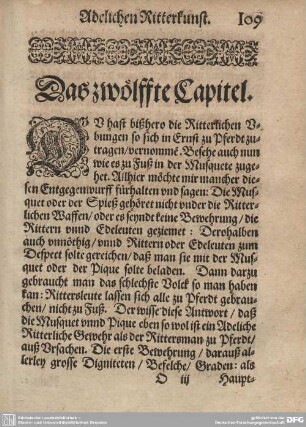 Adelichen Ritterkunst. 109
Das zwölffte Capitel.
DV hast bißhero die Ritterlichen V-
bungen so sich in Ernst zu Pferdt zu-
tragen/ vernommē. Besehe auch nun
wie es zu Fuß in der Musquete zuge-
het. Allhier möchte mir mancher die-
sen Entgegenwurff fürhalten vnd sagen: Die Mus-
quet oder der Spieß gehöret nicht vnder die Ritter-
lichen Waffen/ oder es seyndt keine Bewehrung/ die
Rittern vnnd Edeleuten geziemet: Derohalben
auch vnnöthig/ vnnd Rittern oder Edeleuten zum
Despect solte gereichen/ daß man sie mit der Mus-
quet oder der Pique solte beladen. Dann darzu
gebraucht man das schlechste Volck so man haben
kan: Rittersleute lassen sich alle zu Pferdt gebrau-
chen/ nicht zu Fuß. Der wisse diese Antwort/ daß
die Musquet vnnd Pique eben so wol ist ein Adeliche
Ritterliche Gewehr als der Rittersman zu Pferdt/
auß Vrsachen. Die erste Bewehrung/ darauß al-
lerley grosse Digniteten/ Befelche/ Graden: als
O iij Haupt-